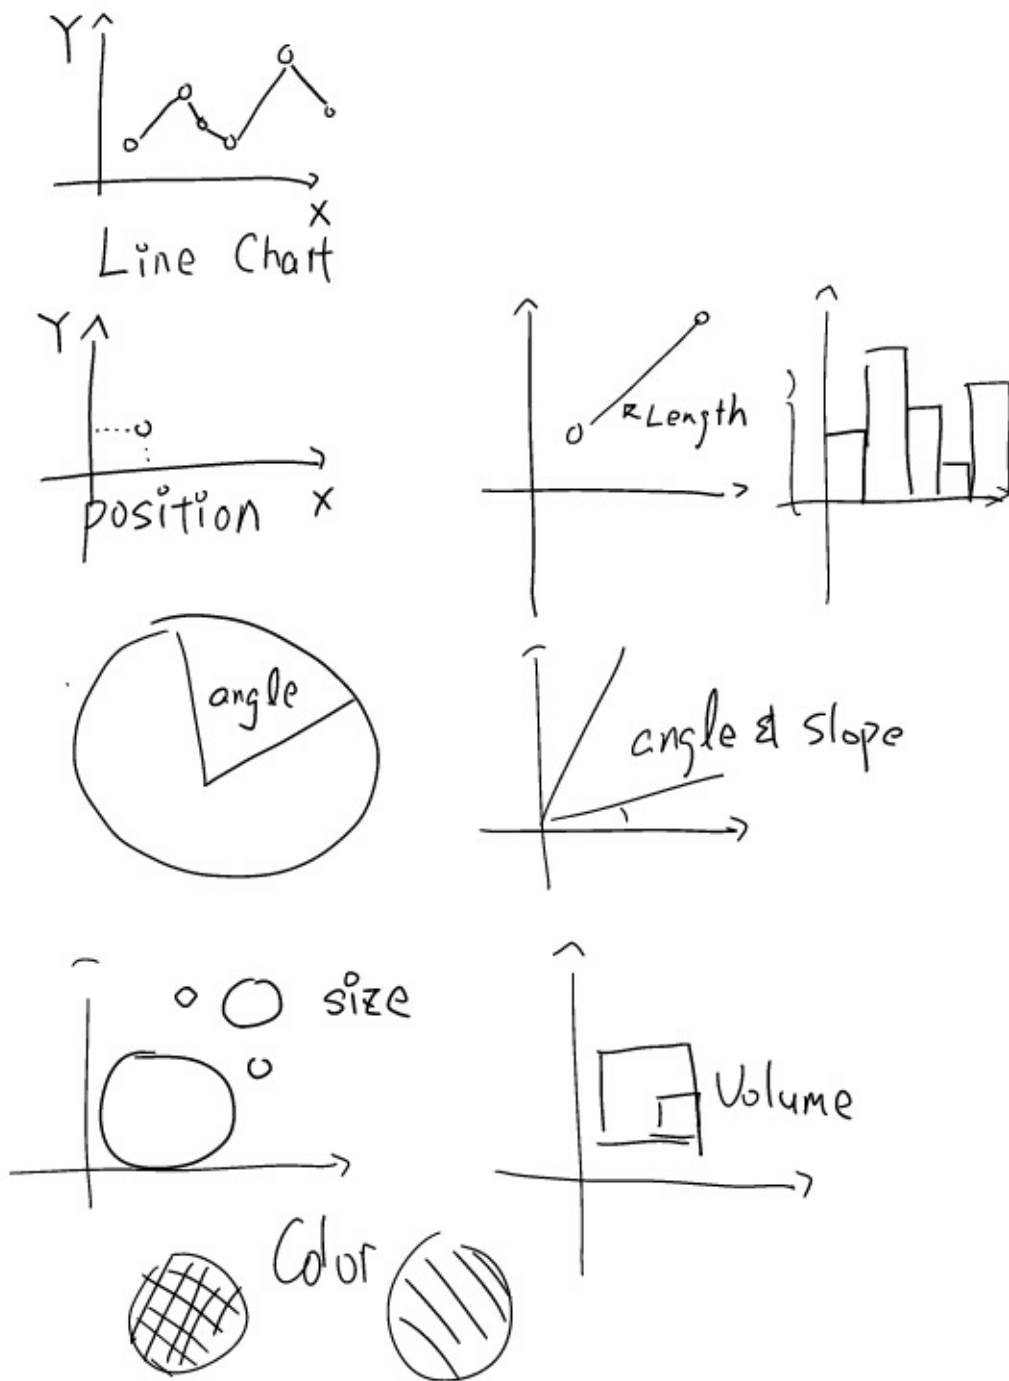 Y
X
Line Chart
Y
X
position
Length
angle
angle & slope
size
Volume
Color